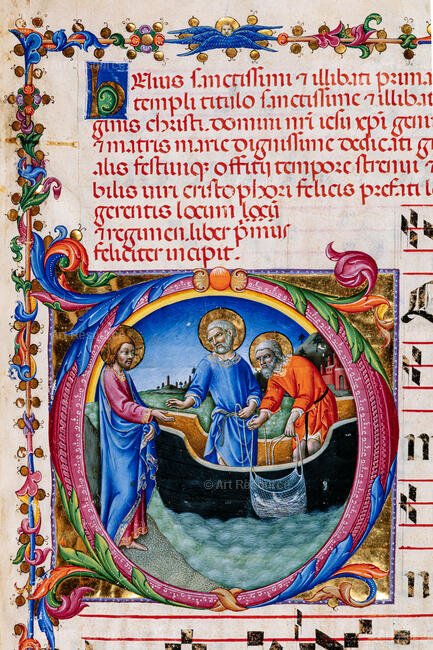 hUius sanctissimi ⁊ illibati prima
templi titulo sanctissime ⁊ illibat
ginis christi. domini nr̄i iesu xp̄i geni
⁊ matris marie dignissime dedicati g
alis festiuiq̧ offitij tempore strenui ⁊
bilis uiri cristophori felicis prefati l
gerentis locum
⁊ regimen. liber p̄mus
feliciter incipit.
© Art Resource